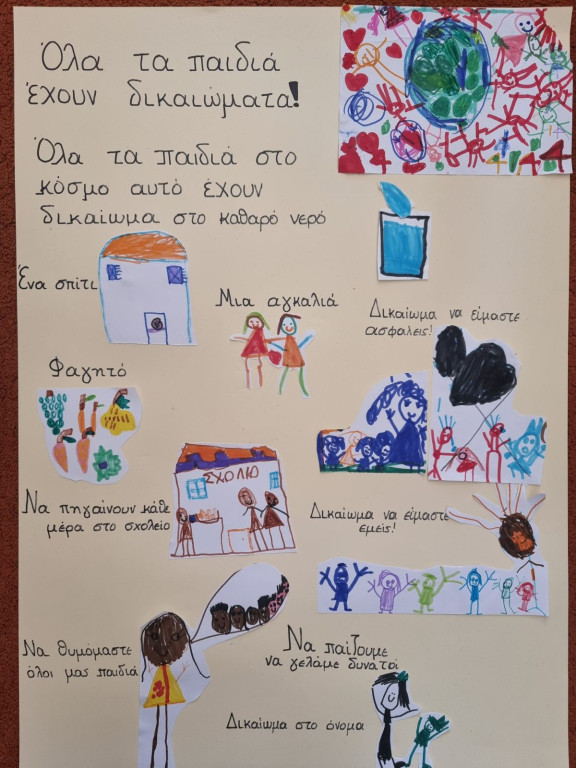 Όλα τα παιδιά
έχουν δικαιώματα!
Όλα τα παιδιά στο
κόσμο αυτό έχουν
δικαίωμα στο καθαρό νερό
Ένα σπίτι
Μια αγκαλιά
Δικαίωμα να είμαστε
ασφαλείς!
Φαγητό
ΣΧΟΛΙΟ
Να πηγαίνουν κάθε
μέρα στο σχολείο
Δικαίωμα να είμαστε
εμείς!
Να θυμόμαστε
όλοι μας παιδιά
Να παίζουμε
να γελάμε δυνατά
Δικαίωμα στο όνομα